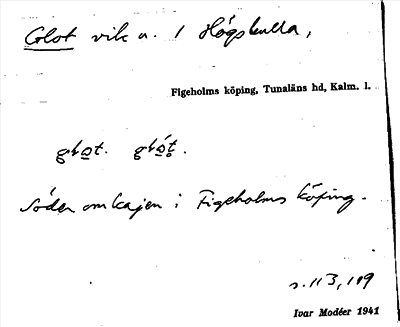 Glot vik u. 1 Högskulla,
Figeholms köping, Tunaläns hd, Kalm. l.
Söder om kajen i Figeholms köping.
s. 113, 119
Ivar Modéer 1941